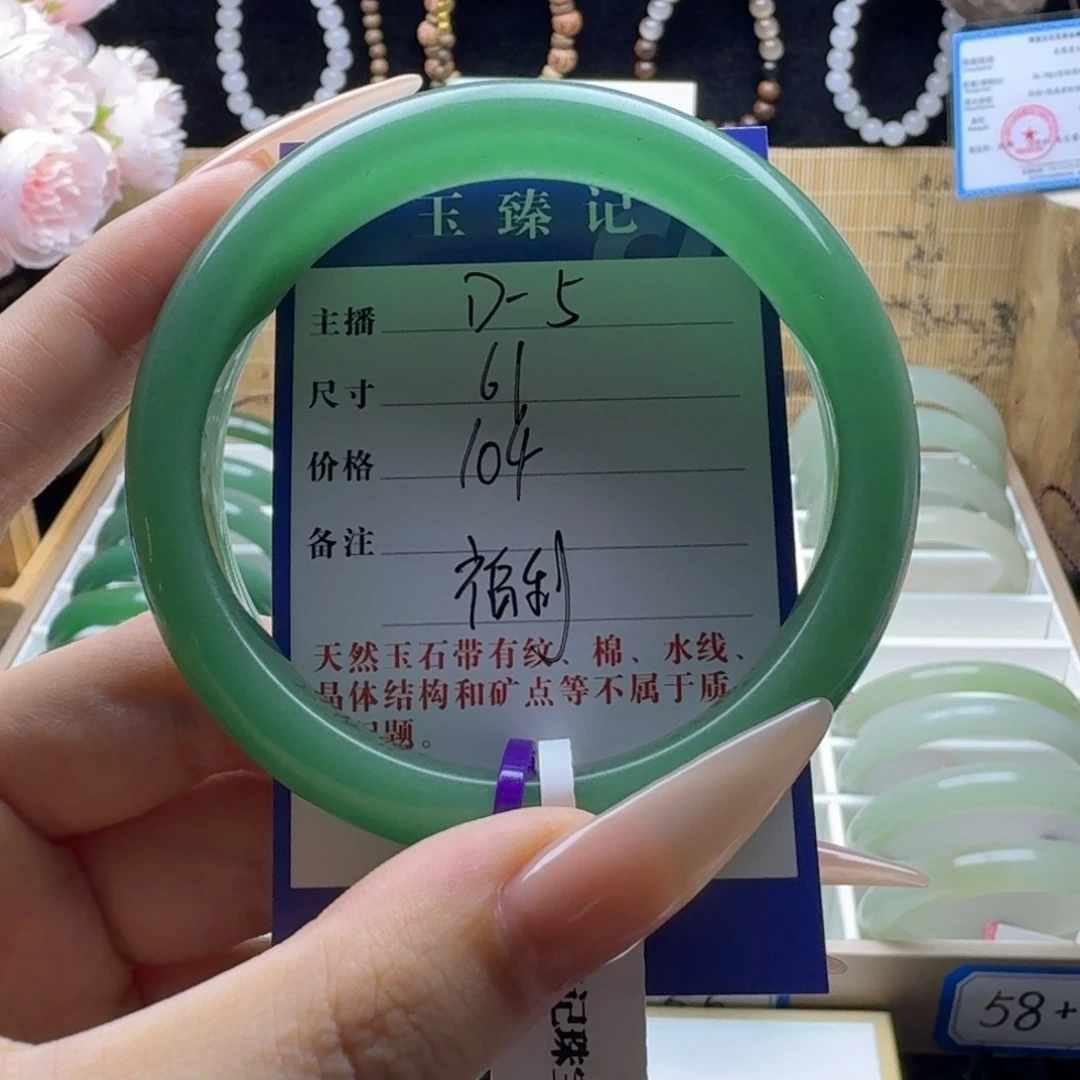 玉臻记
主播 D-5
尺寸 61
价格 104
备注
福利
天然玉石带有纹、棉、水线、
晶体结构和矿点等不属于质
题。
记珠
58+